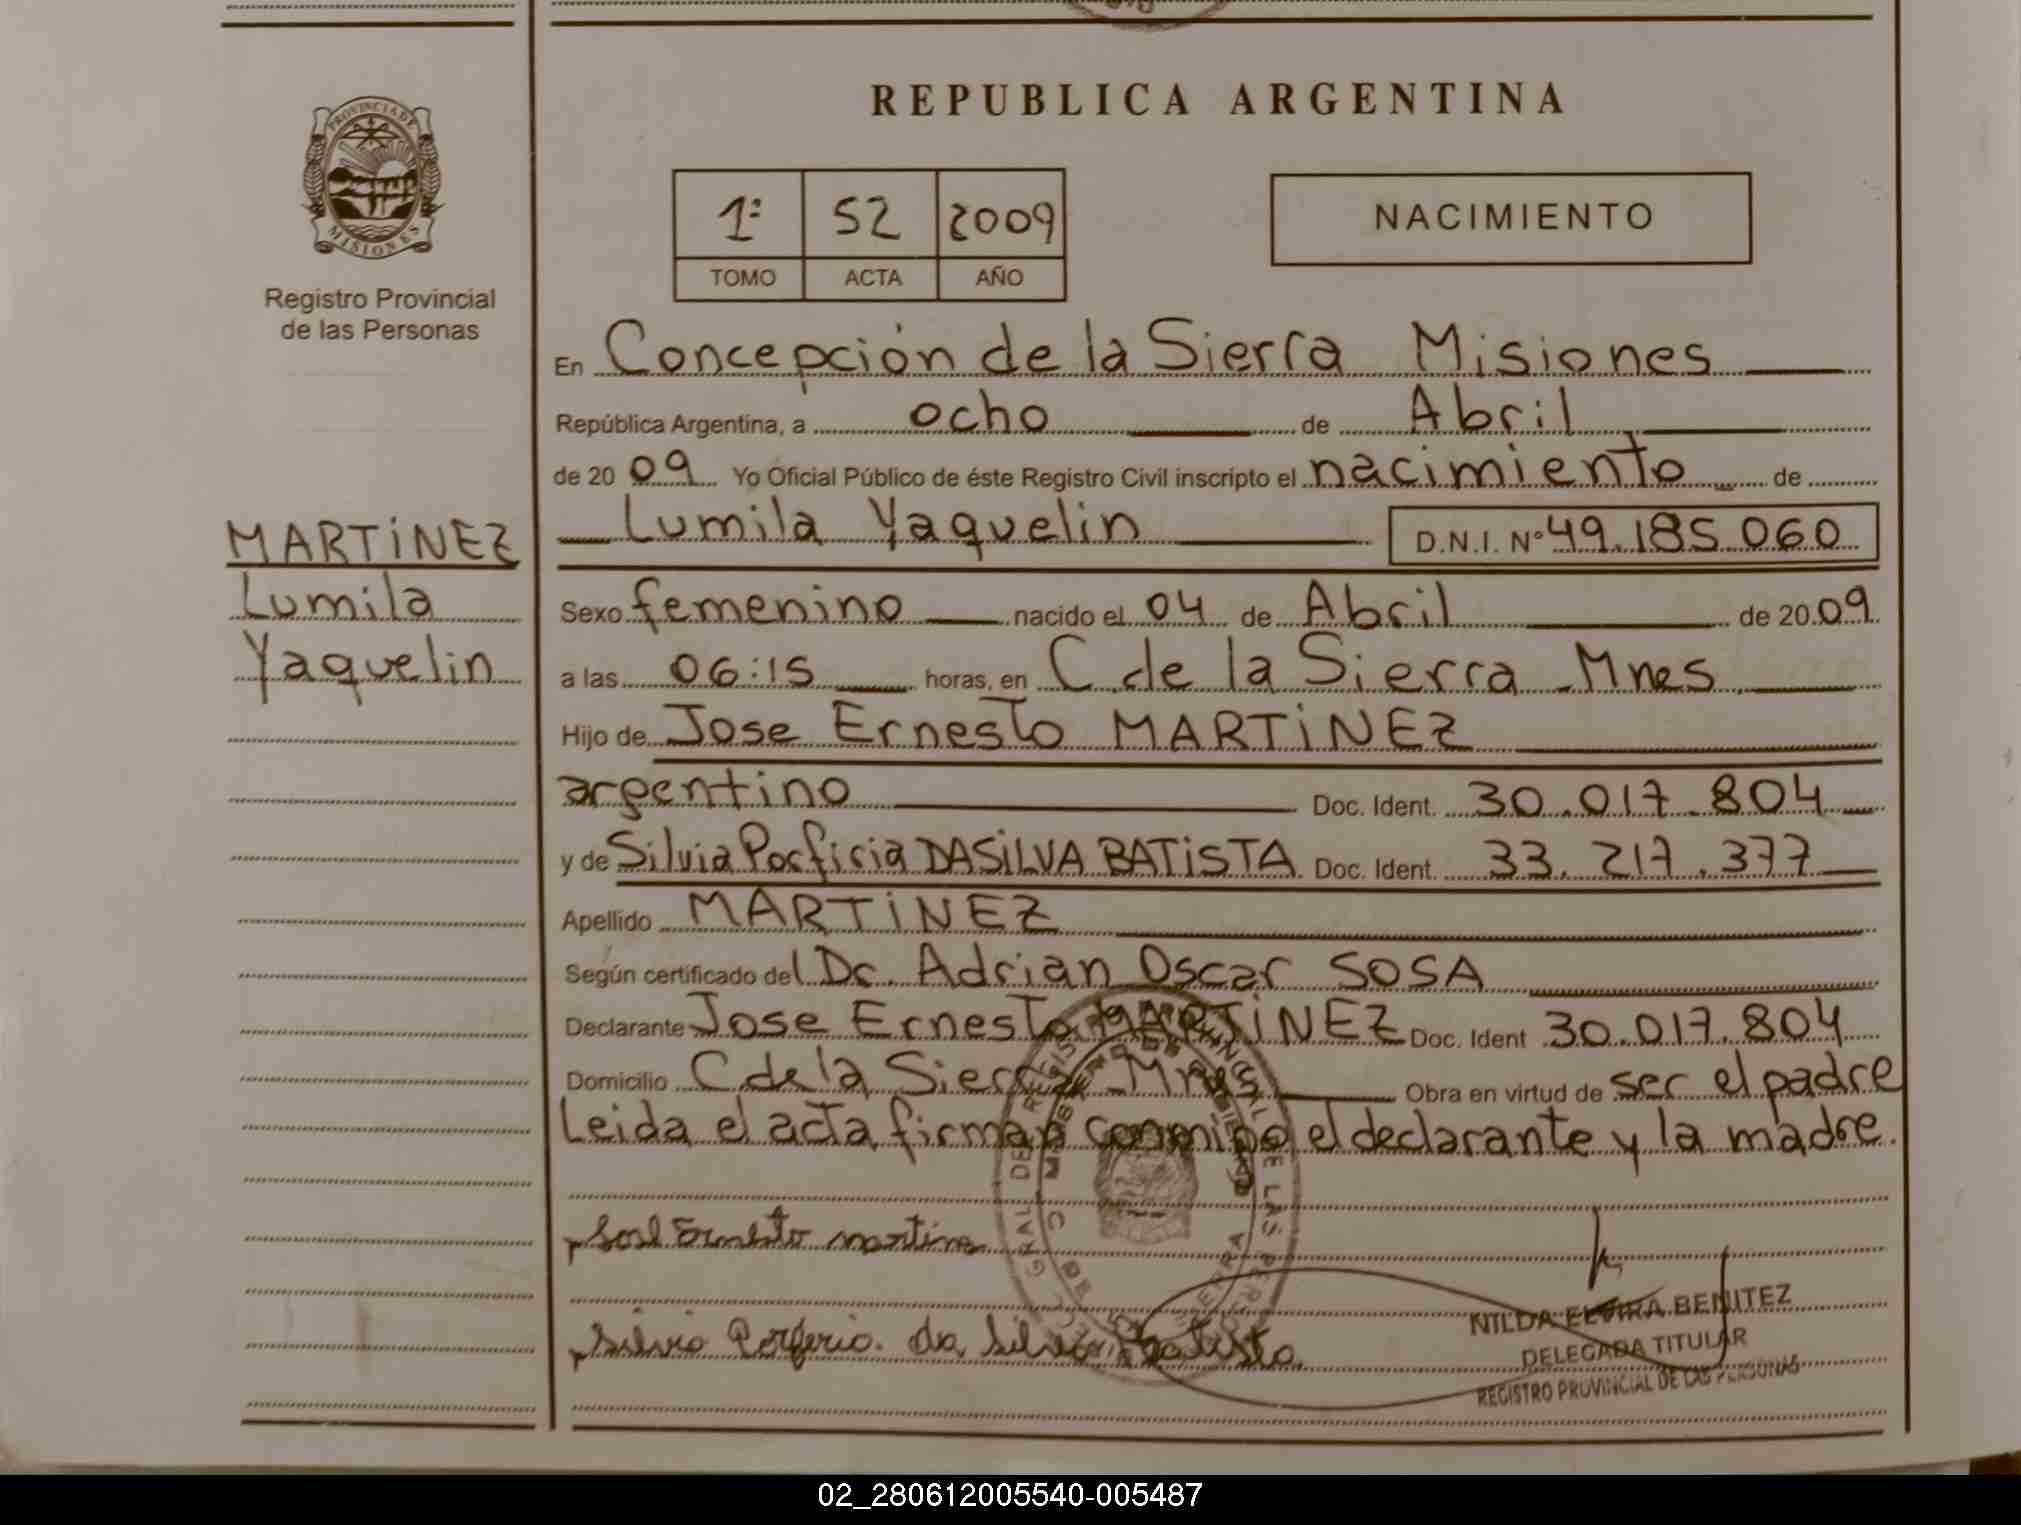 REPUBLICA ARGENTINA
PROVINCIA DE
MISIONES
Registro Provincial
de las Personas
1º 52 2009
TOMO ACTA AÑO
NACIMIENTO
En Concepción de la Sierra Misiones
República Argentina, a ocho de Abril
de 20 09 Yo Oficial Público de éste Registro Civil inscripto el nacimiento de
Lumila Yaquelin D.N.I. Nº 49.185.060
MARTiNEZ
Lumila
Yaquelin
Sexo femenino nacido el 04 de Abril de 20 09
a las 06:15 horas, en C. de la Sierra - Mnes
Hijo de Jose Ernesto MARTiNEZ
argentino Doc. Ident. 30.017.804
y de Silvia Porfiria DASiLVA BATiSTA Doc. Ident. 33.217.377
Apellido MARTiNEZ
Según certificado del Dr. Adrian Oscar SOSA
Declarante Jose Ernesto MARTiNEZ Doc. Ident 30.017.804
Domicilio C de la Sierra - Mnes Obra en virtud de ser el padre
Leida el acta firman conmigo el declarante y la madre.
Ernesto
da Silva Batista
NILDA ELVIRA BENITEZ
DELEGADA TITULAR
REGISTRO PROVINCIAL DE LAS PERSONAS
02_280612005540-005487